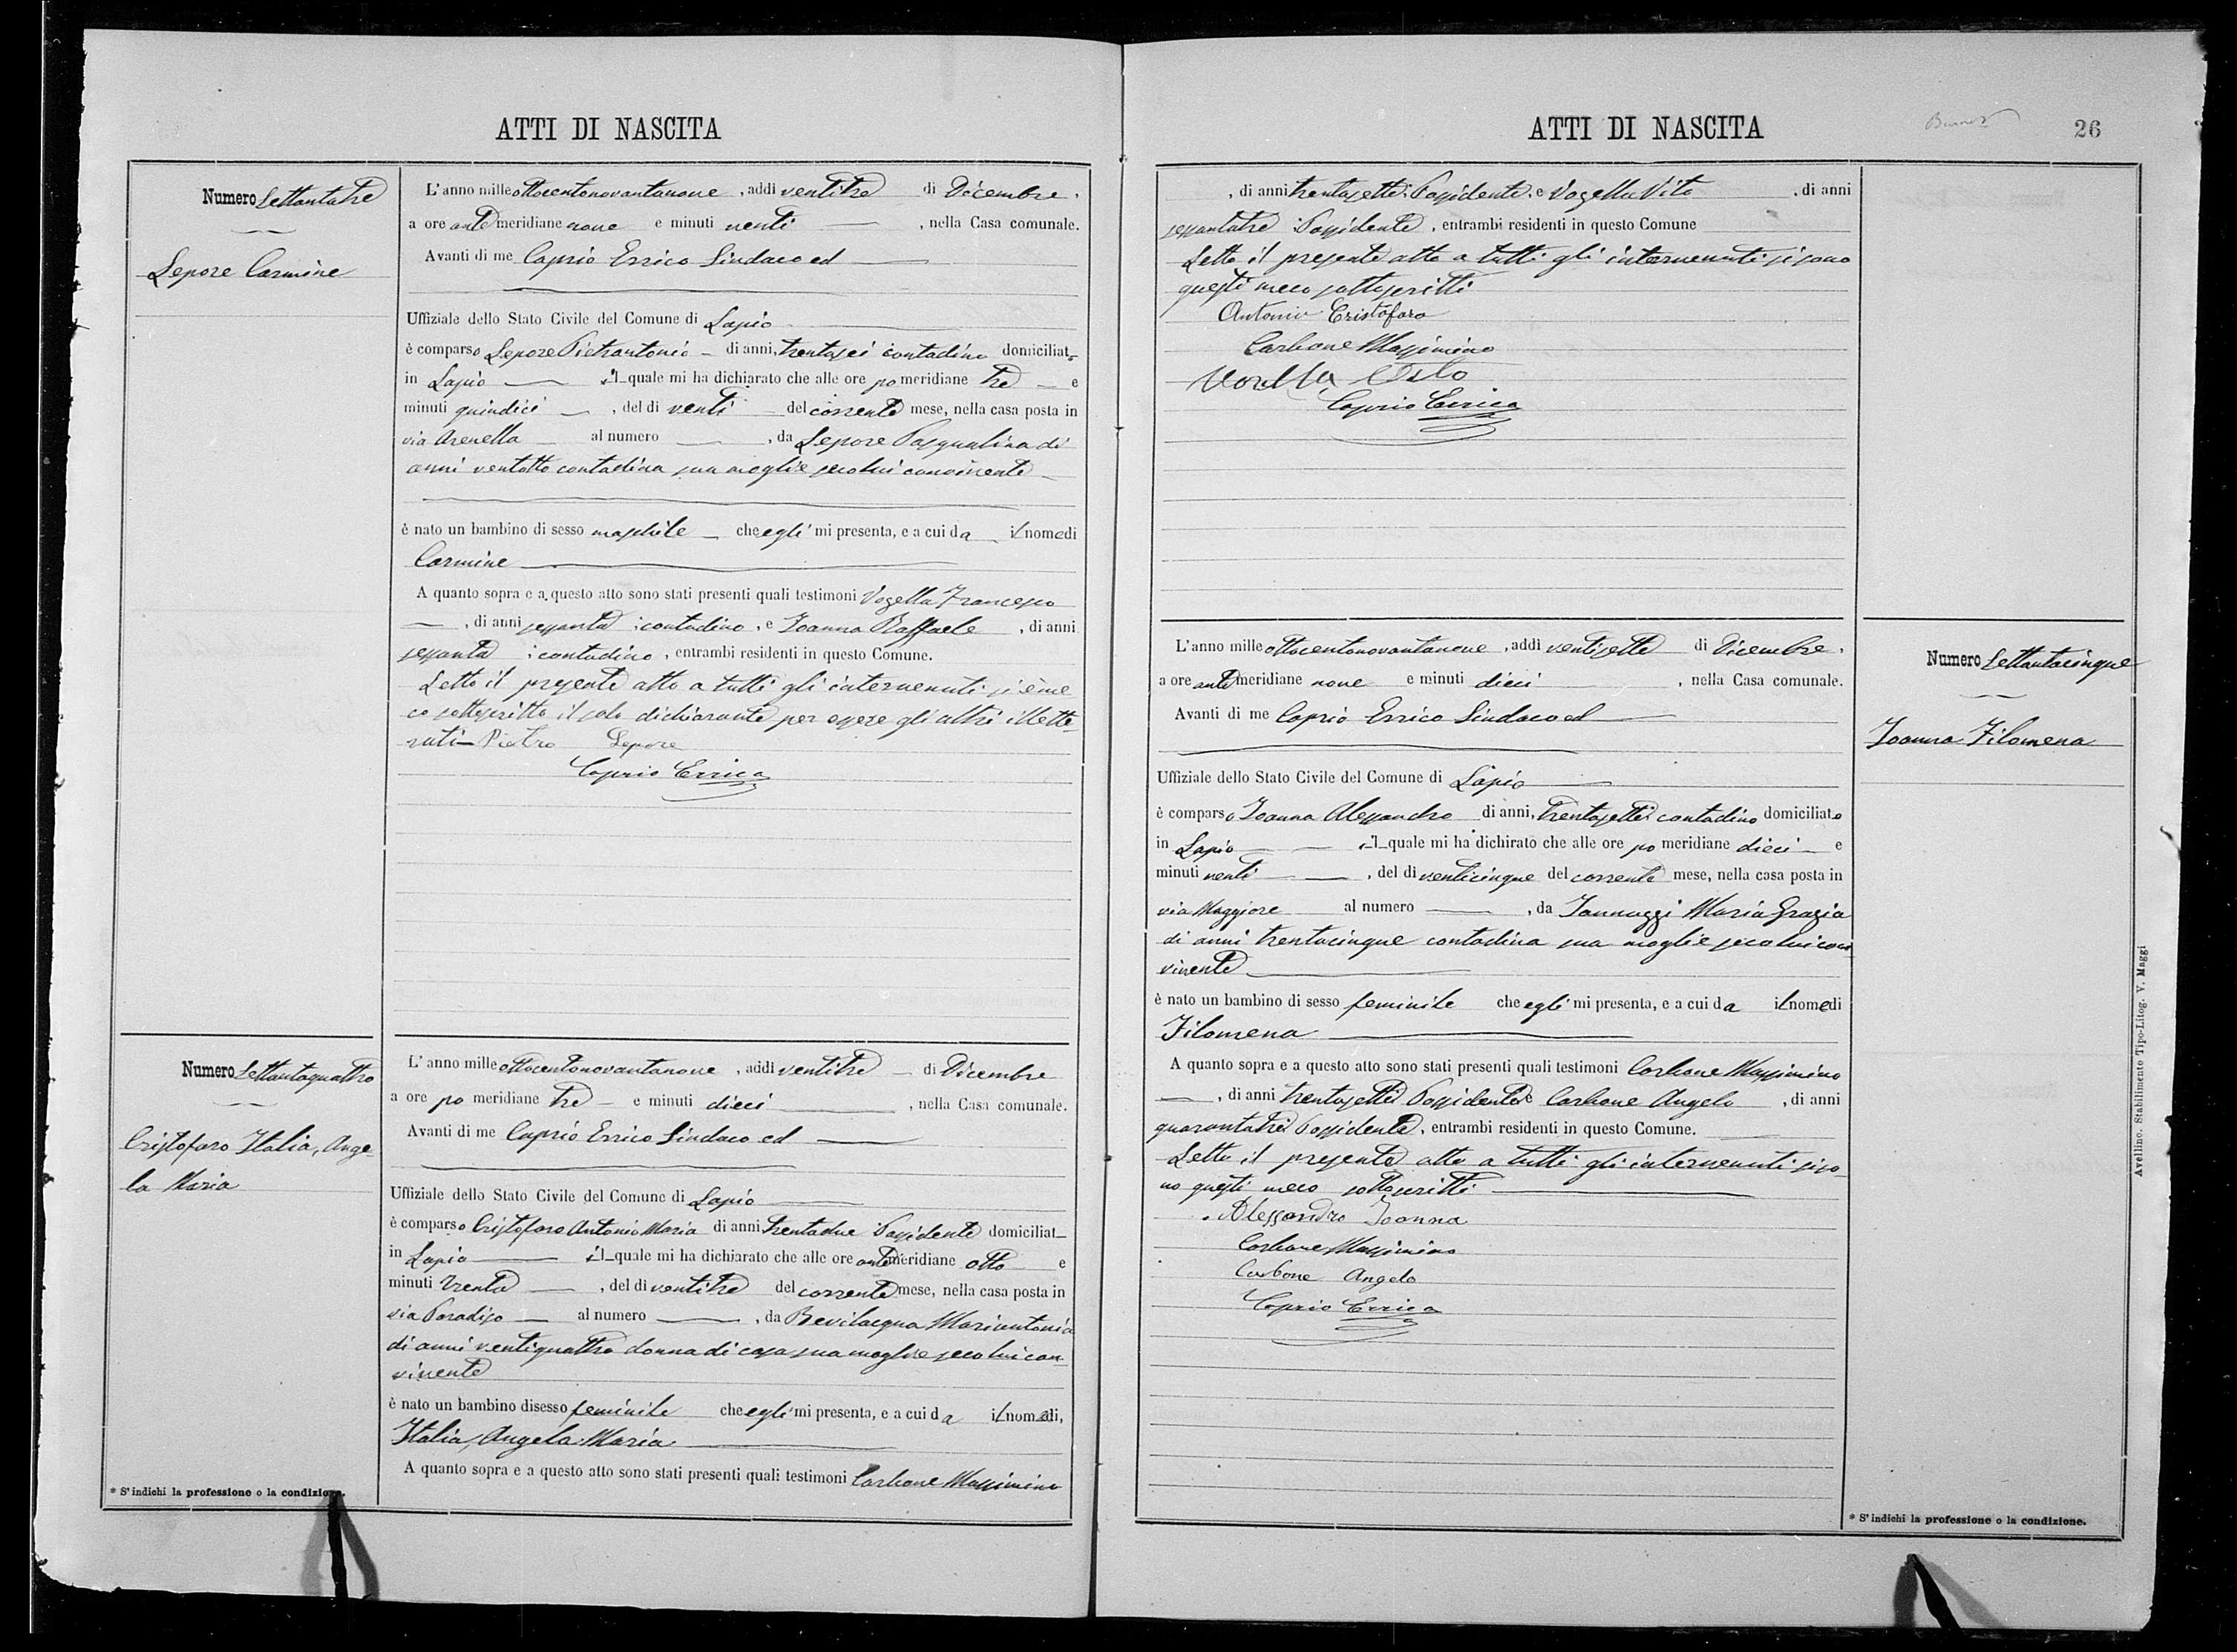 ATTI DI NASCITA
Numero Settantatre
Lepore Carmine
L'anno mille ottocentonovantanove, addì ventitre di Dicembre,
a ore antemeridiane nove e minuti venti, nella Casa comunale.
Avanti di me Caprio Errico Sindaco ed
Uffiziale dello Stato Civile del Comune di Lapio
è comparso Lepore Pietrantonio di anni, trentasei contadino domiciliato
in Lapio il quale mi ha dichiarato che alle ore pomeridiane tre e
minuti quindici, del dì venti del corrente mese, nella casa posta in
via Arenella al numero, da Lepore Pasqualina di
anni ventotto contadina sua moglie secolui convivente
è nato un bambino di sesso maschile che egli mi presenta, e a cui da il nome di
Carmine
A quanto sopra e a questo atto sono stati presenti quali testimoni Vozella Francesco
, di anni sessanta contadino, e Ioanna Raffaele, di anni
sessanta contadino, entrambi residenti in questo Comune.
Letto il presente atto a tutti gli intervenuti si è me
co sottoscritto il solo dichiarante per essere gli altri illette-
rati Pietro Lepore
Caprio Errico
Numero Settantaquattro
Cristofaro Italia, Ange-
la Maria
L'anno mille ottocentonovantanove, addì ventitre di Dicembre
a ore pomeridiane tre e minuti dieci, nella Casa comunale.
Avanti di me Caprio Errico Sindaco ed
Uffiziale dello Stato Civile del Comune di Lapio
è comparso Cristofaro Antonio Maria di anni trentadue Possidente domiciliat
in Lapio il quale mi ha dichiarato che alle ore antemeridiane otto e
minuti trenta, del dì ventitre del corrente mese, nella casa posta in
via Paradiso al numero, da Bevilacqua Mariantonia
di anni ventiquattro donna di casa sua moglie secolui con
vivente
è nato un bambino di sesso feminile che egli mi presenta, e a cui da il nome di,
Italia, Angela Maria
A quanto sopra e a questo atto sono stati presenti quali testimoni Carbone Massimino
* S'indichi la professione o la condizione.
ATTI DI NASCITA
26
, di anni trentasette Possidente, e Vozella Vito, di anni
sessantatre Possidente, entrambi residenti in questo Comune
Letto il presente atto a tutti gli intervenuti si sono
questi meco sottoscritti
Antonio Cristofaro
Carbone Massimino
Vozella Vito
Caprio Errico
Numero Settantacinque
Ioanna Filomena
L'anno mille ottocentonovantanove, addì ventisette di Dicembre,
a ore antemeridiane nove e minuti dieci, nella Casa comunale.
Avanti di me Caprio Errico Sindaco ed
Uffiziale dello Stato Civile del Comune di Lapio
è comparso Ioanna Alessandro di anni, trentasette contadino domiciliato
in Lapio il quale mi ha dichirato che alle ore pomeridiane dieci e
minuti venti, del dì venticinque del corrente mese, nella casa posta in
via Maggiore al numero, da Iannuzzi Maria Grazia
di anni trentacinque contadina sua moglie secolui con
vivente
è nato un bambino di sesso feminile che egli mi presenta, e a cui da il nome di
Filomena
A quanto sopra e a questo atto sono stati presenti quali testimoni Carbone Massimino
, di anni trentasette Possidente e Carbone Angelo, di anni
quarantatre Possidente, entrambi residenti in questo Comune.
Letto il presente atto a tutti gli intervenuti si so-
no questi meco sottoscritti
Alessandro Ioanna
Carbone Massimino
Carbone Angelo
Caprio Errico
* S'indichi la professione o la condizione.
Avellino. Stabilimento Tipo-Litog. V. Maggi